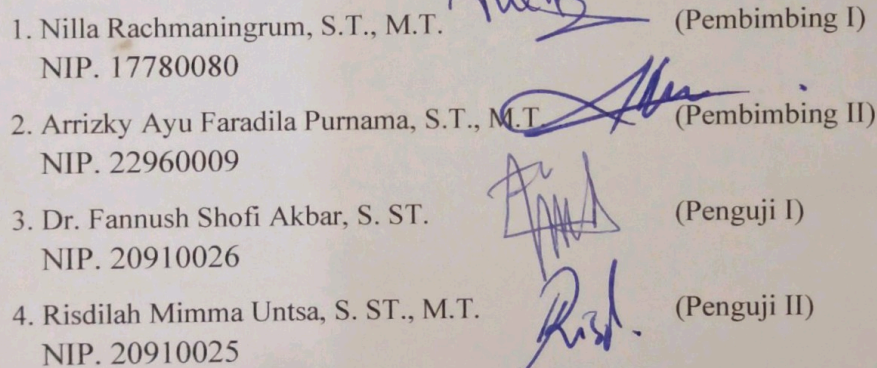 1. Nilla Rachmaningrum, S.T., M.T. (Pembimbing I)
NIP. 17780080
2. Arrizky Ayu Faradila Purnama, S.T., M.T. (Pembimbing II)
NIP. 22960009
3. Dr. Fannush Shofi Akbar, S. ST. (Penguji I)
NIP. 20910026
4. Risdilah Mimma Untsa, S. ST., M.T. (Penguji II)
NIP. 20910025